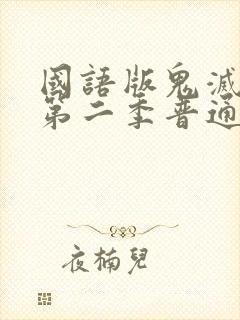 國語版鬼滅
第二季普通
夜楠兒